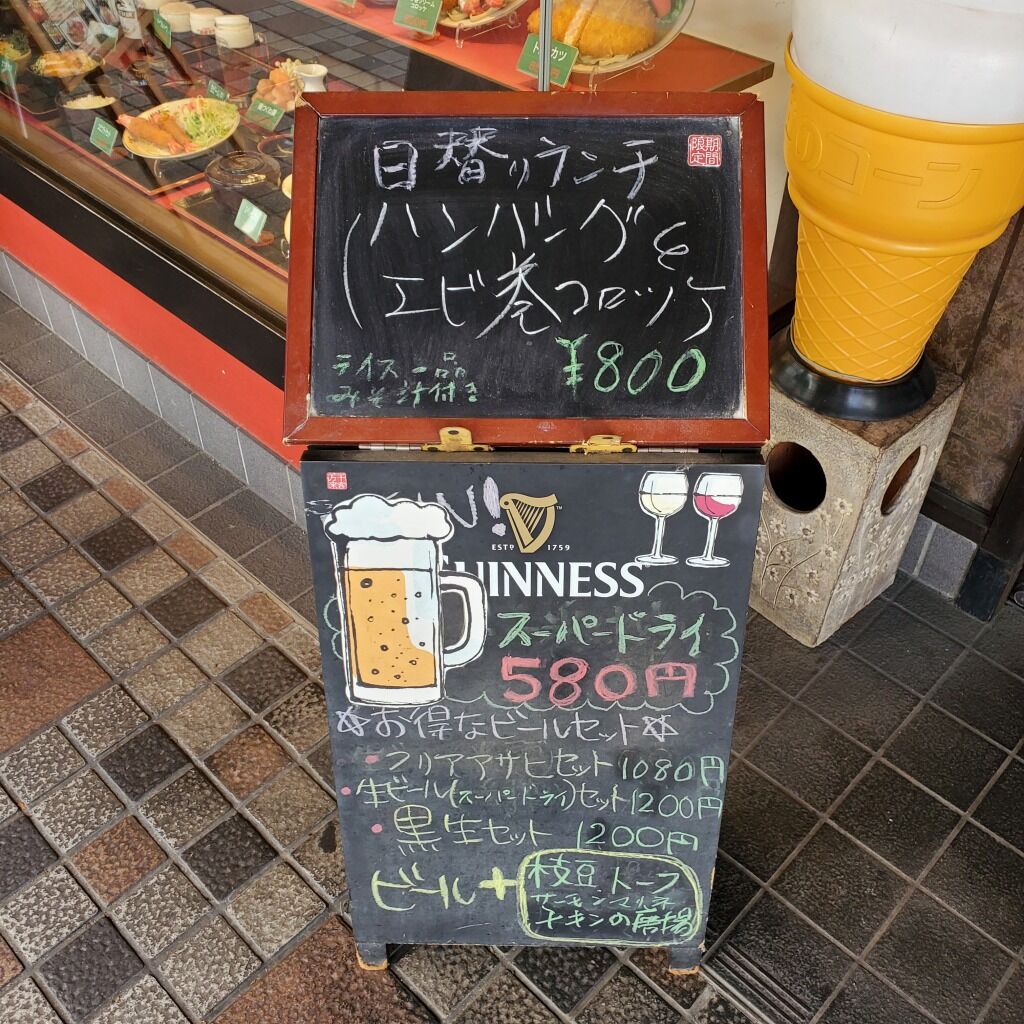 期間
限定
日替りランチ
ハンバーグと
エビ巻コロッケ
ライス一品
みそ汁付き
¥800
千客
万来
ESTD 1759
GUINNESS
スーパードライ
580円
お得なビールセット
・クリアアサヒセット 1080円
・生ビール(スーパードライ)セット 1200円
・黒生セット 1200円
ビール+
枝豆 トーフ
サーモンマリネ
チキンの唐揚
コーン